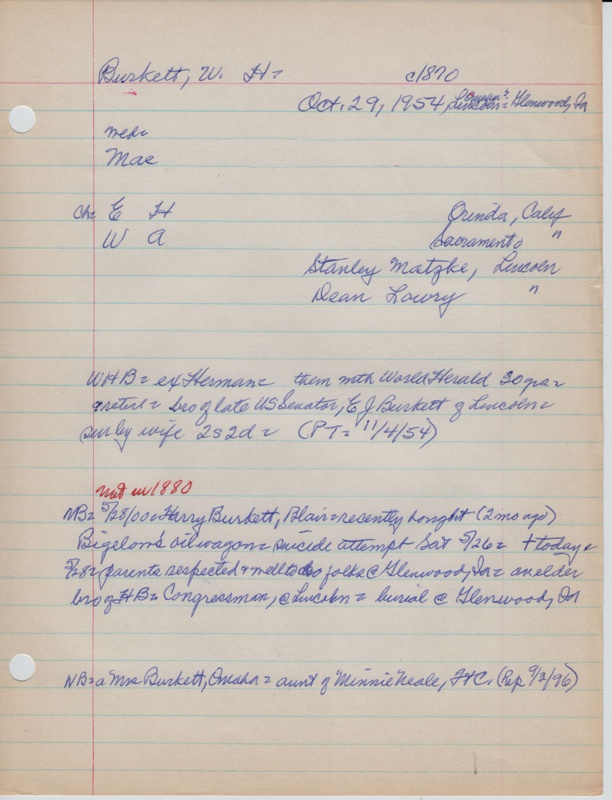 Burkett, W. H=   c1870
Oct. 29, 1954, Lincoln = Glenwood, Ia
med=
Mae
Ch= E H   Orinda, Calif
W A   Sacramento "
Stanley Matzke, Lincoln
Dean Lowry "
WHB= ex Herman= then mth World Herald 30 yrs=
retire= bro of late US Senator, E J Burkett of Lincoln=
sur by wife 2s 2d= (PT= 11/4/54)
not in 1880
NB= 5/28/00= Harry Burkett, Blair= recently bought (2 mo ago)
Bigelow's oil wagon= suicide attempt Sat 5/26= + today=
5/28= parents respected & well to do folks @ Glenwood, Ia= an elder
bro of HB= Congressman, @ Lincoln= burial @ Glenwood, Ia
NB= a Mrs Burkett, Omaha= aunt of Minnie Neale, FtC. (Rep 9/2/96)